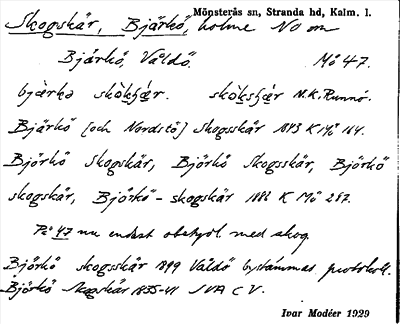 Skogskär, Björkö, holme NO om
Mönsterås sn, Stranda hd, Kalm. l.
Björkö, Våldö. Mö 47.
bjærkə skòkʃær. skòksʃær N.K. Runnö.
Björkö (och Nordstö) Skogsskär 1843 K Mö 164.
Björkö Skogskär, Björkö Skogsskär, Björkö
skogskär, Björkö-skogskär 1882 K Mö 287.
På 47 nu endast obetydl. med skog
Björkö skogsskär 1899 Våldö bystämmas protokoll.
Björkö skogskär 1855-41 SVA CV.
Ivar Modéer 1929